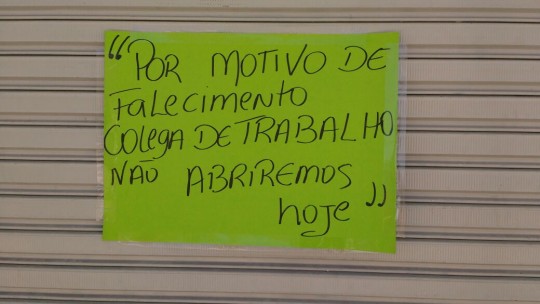 “POR MOTIVO DE
FALECIMENTO
COLEGA DE TRABALHO
NÃO ABRIREMOS
hoje”